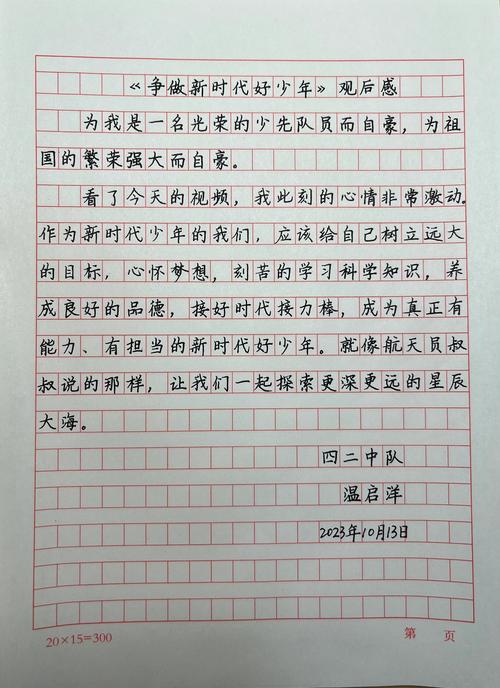 《争做新时代好少年》观后感
为我是一名光荣的少先队员而自豪，为祖
国的繁荣强大而自豪。
看了今天的视频，我此刻的心情非常激动.
作为新时代少年的我们，应该给自己树立远大
的目标，心怀梦想，刻苦的学习科学知识，养
成良好的品德，接好时代接力棒，成为真正有
能力、有担当的新时代好少年。就像航天员叔
叔说的那样，让我们一起探索更深更远的星辰
大海。
四二中队
温启洋
2023年10月13日
20×15=300
第 页